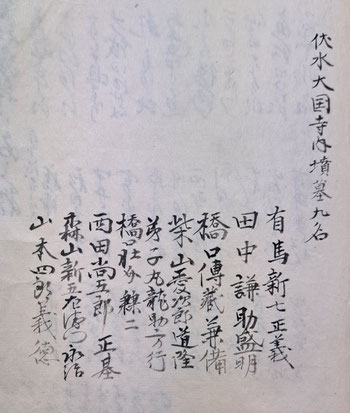 伏水大国寺内墳墓九名
有馬新七正義
田中謙助盛明
橋口傳蔵兼備
柴山愛次郎道隆
弟子丸龍助方行
橋口壮介
西田尚五郎 正基
森山新五左衛門永治
山本四郎義徳